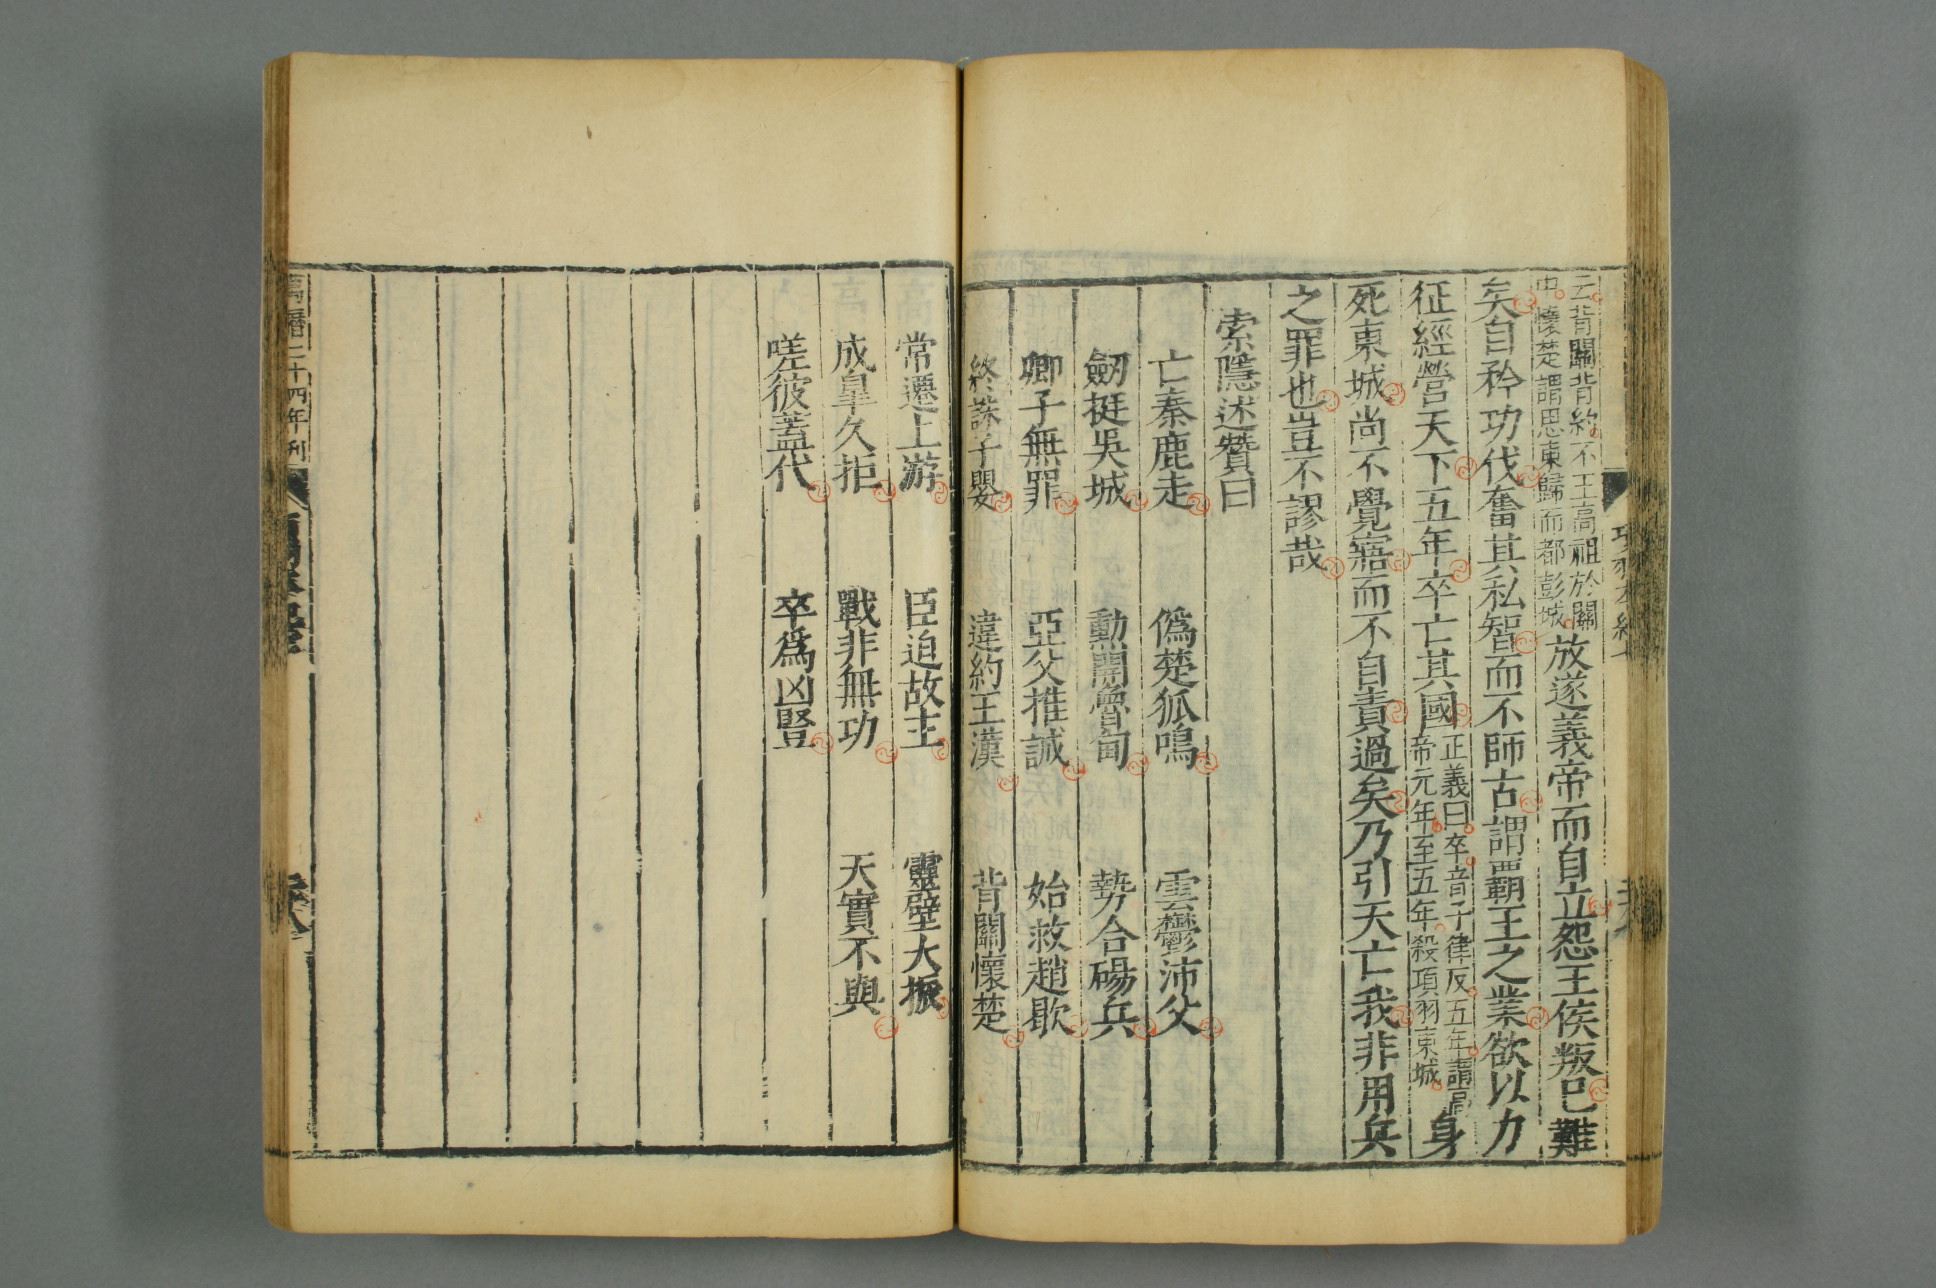 項羽本紀七
云背關背約不王高祖於關
中懷楚謂思東歸而都彭城
放逐義帝而自立怨王侯叛已難
矣自矜功伐奮其私智而不師古謂霸王之業欲以力
征經營天下五年卒亡其國
正義曰卒音子律反五年謂高
帝元年至五年殺項羽東城
身
死東城尚不覺寤而不自責過矣乃引天亡我非用兵
之罪也豈不謬哉
索隱述贊曰
亡秦鹿走 僞楚狐鳴 雲鬱沛父
劒挺吳城 勳開魯甸 勢合碭兵
卿子無罪 亞父推誠 始救趙歇
終誅子嬰 違約王漢 背關懷楚
常遷上游 臣迫故主 靈壁大振
成皐久拒 戰非無功 天實不與
嗟彼蓋代 卒爲凶豎
萬曆二十四年刊